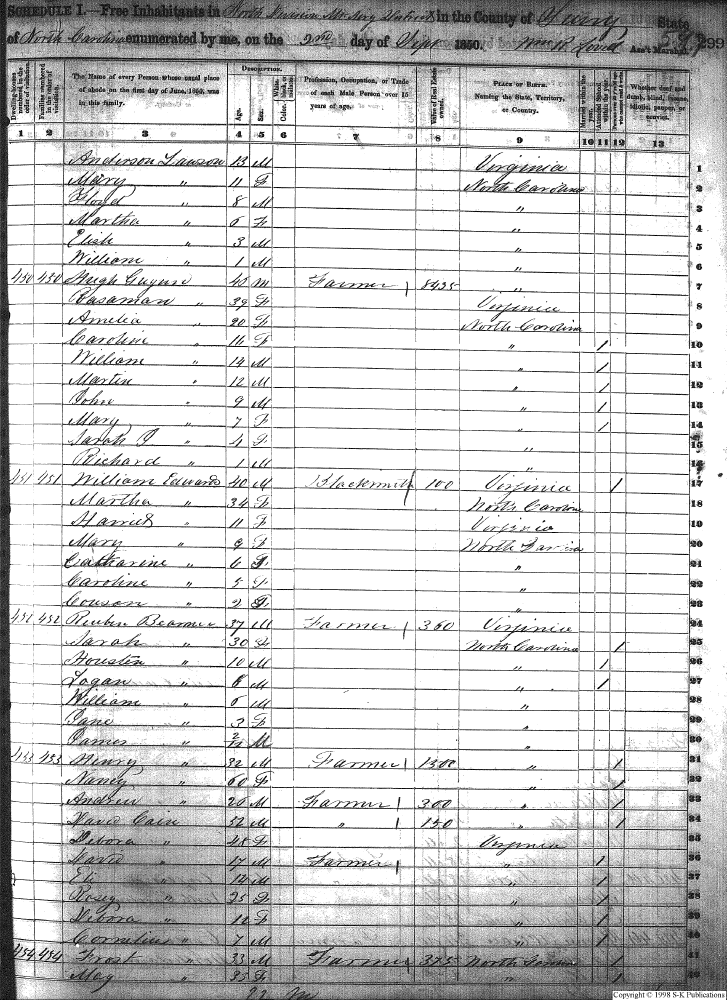 SCHEDULE I.—Free Inhabitants in North Division in the County of Surry State
of North Carolina enumerated by me, on the 2nd day of Sept 1850. Wm R. Ass't Marshal. 299
Dwelling-houses numbered in the order of visitation.
Families numbered in the order of visitation.
The Name of every Person whose usual place of abode on the first day of June, 1850, was in this family.
DESCRIPTION.
Age.
Sex.
Color.
Profession, Occupation, or Trade of each Male Person over 15 years of age.
Value of Real Estate owned.
PLACE OF BIRTH. Naming the State, Territory, or Country.
Married within the year.
Attended School within the year.
Whether deaf and dumb, blind, insane, idiotic, pauper, or convict.
1 2 3 4 5 6 7 8 9 10 11 12 13
Anderson Lawson 13 M Virginia 1
Mary " 11 F North Carolina 2
Floyd " 8 M " 3
Martha " 6 F " 4
Elish " 3 M " 5
William " 1 M " 6
450 450 Hugh 40 M Farmer 8435 " 7
Rosaman " 39 F Virginia 8
Amelia " 20 F North Carolina 9
Caroline " 16 F " 1 10
William " 14 M " 1 11
Martin " 12 M " 1 12
John " 9 M " 1 13
Mary " 7 F " 1 14
Sarah J " 4 F " 15
Richard " 1 M " 16
451 451 William Edwards 40 M Blacksmith 100 Virginia 1 17
Martha " 34 F North Carolina 18
Harriet " 11 F Virginia 19
Mary " 9 F North Carolina 20
Catharine " 6 F " 21
Caroline " 5 F "
" 2 F "
452 Reuben 37 M Farmer 360 Virginia 24
Sarah " 30 F North Carolina 1 25
Houston " 10 M " 1 26
Logan " 8 M " 1 27
William " 6 M " 28
Jane " 3 F " 29
James " M " 30
453 453 Henry " 32 M Farmer 1300 " 1 31
Nancy " 60 F " 1 32
Andrew " 20 M Farmer 300 " 1 33
David 52 M " 150 " 1 34
Debora " 48 F Virginia 35
David " 17 M Farmer " 1 36
Eli " 14 M " 1 37
Rosey " 25 F " 1 38
Debora " 12 F " 1 39
Cornelius " 7 M " 1 40
454 454 Frost " 33 M Farmer 375 North Carolina 41
May " 35 F "
Copyright © 1998 S-K Publications